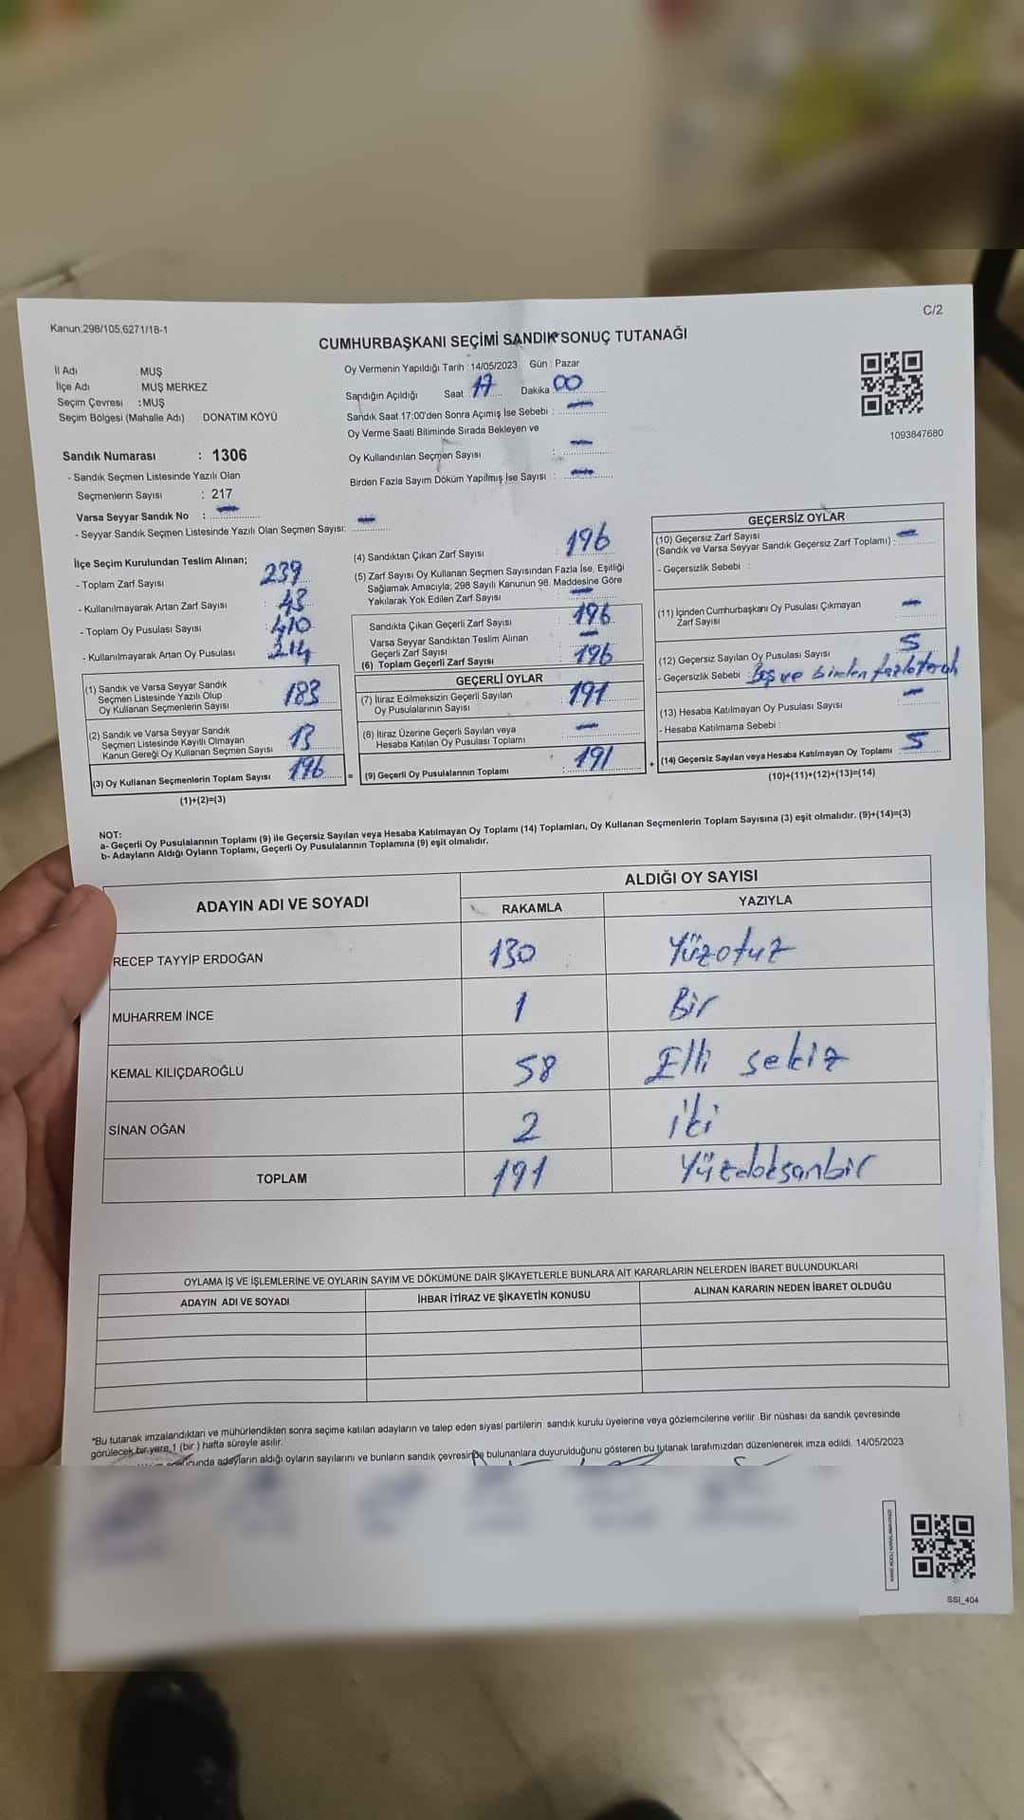 Kanun.298/105,6271/18-1
C/2
CUMHURBAŞKANI SEÇİMİ SANDIK SONUÇ TUTANAĞI
İl Adı MUŞ
İlçe Adı MUŞ MERKEZ
Seçim Çevresi :MUŞ
Seçim Bölgesi (Mahalle Adı) DONATIM KÖYÜ
Sandık Numarası : 1306
- Sandık Seçmen Listesinde Yazılı Olan
Seçmenlerin Sayısı : 217
Varsa Seyyar Sandık No : -
- Seyyar Sandık Seçmen Listesinde Yazılı Olan Seçmen Sayısı: -
Oy Vermenin Yapıldığı Tarih : 14/05/2023 Gün : Pazar
Sandığın Açıldığı Saat 17 Dakika 00
Sandık Saat 17:00'den Sonra Açımış İse Sebebi : -
Oy Verme Saati Bitiminde Sırada Bekleyen ve
Oy Kullandırılan Seçmen Sayısı : -
Birden Fazla Sayım Döküm Yapılmış İse Sayısı : -
1093847680
İlçe Seçim Kurulundan Teslim Alınan;
- Toplam Zarf Sayısı 239
- Kullanılmayarak Artan Zarf Sayısı : 43
- Toplam Oy Pusulası Sayısı 410
- Kullanılmayarak Artan Oy Pusulası 214
(1) Sandık ve Varsa Seyyar Sandık
Seçmen Listesinde Yazılı Olup
Oy Kullanan Seçmenlerin Sayısı 183
(2) Sandık ve Varsa Seyyar Sandık
Seçmen Listesinde Kayıtlı Olmayan
Kanun Gereği Oy Kullanan Seçmen Sayısı 13
(3) Oy Kullanan Seçmenlerin Toplam Sayısı 196
(1)+(2)=(3)
=
(4) Sandıktan Çıkan Zarf Sayısı : 196
(5) Zarf Sayısı Oy Kullanan Seçmen Sayısından Fazla İse, Eşitliği
Sağlamak Amacıyla; 298 Sayılı Kanunun 98. Maddesine Göre
Yakılarak Yok Edilen Zarf Sayısı -
Sandıkta Çıkan Geçerli Zarf Sayısı 196
Varsa Seyyar Sandıktan Teslim Alınan
Geçerli Zarf Sayısı -
(6) Toplam Geçerli Zarf Sayısı 196
GEÇERLİ OYLAR
(7) İtiraz Edilmeksizin Geçerli Sayılan
Oy Pusulalarının Sayısı 191
(8) İtiraz Üzerine Geçerli Sayılan veya
Hesaba Katılan Oy Pusulası Toplamı -
(9) Geçerli Oy Pusulalarının Toplamı : 191
+
GEÇERSİZ OYLAR
(10) Geçersiz Zarf Sayısı
(Sandık ve Varsa Seyyar Sandık Geçersiz Zarf Toplamı) : -
- Geçersizlik Sebebi :
(11) İçinden Cumhurbaşkanı Oy Pusulası Çıkmayan
Zarf Sayısı -
(12) Geçersiz Sayılan Oy Pusulası Sayısı 5
- Geçersizlik Sebebi Boş ve birden
(13) Hesaba Katılmayan Oy Pusulası Sayısı -
- Hesaba Katılmama Sebebi :
(14) Geçersiz Sayılan veya Hesaba Katılmayan Oy Toplamı 5
(10)+(11)+(12)+(13)=(14)
NOT:
a- Geçerli Oy Pusulalarının Toplamı (9) ile Geçersiz Sayılan veya Hesaba Katılmayan Oy Toplamı (14) Toplamları, Oy Kullanan Seçmenlerin Toplam Sayısına (3) eşit olmalıdır. (9)+(14)=(3)
b- Adayların Aldığı Oyların Toplamı, Geçerli Oy Pusulalarının Toplamına (9) eşit olmalıdır.
ADAYIN ADI VE SOYADI
ALDIĞI OY SAYISI
RAKAMLA YAZIYLA
RECEP TAYYİP ERDOĞAN 130 Yüzotuz
MUHARREM İNCE 1 Bir
KEMAL KILIÇDAROĞLU 58 Elli sekiz
SİNAN OĞAN 2 iki
TOPLAM 191 Yüzdoksanbir
OYLAMA İŞ VE İŞLEMLERİNE VE OYLARIN SAYIM VE DÖKÜMÜNE DAİR ŞİKAYETLERLE BUNLARA AİT KARARLARIN NELERDEN İBARET BULUNDUKLARI
ADAYIN ADI VE SOYADI İHBAR İTİRAZ VE ŞİKAYETİN KONUSU ALINAN KARARIN NEDEN İBARET OLDUĞU
*Bu tutanak imzalandıktan ve mühürlendikten sonra seçime katılan adayların ve talep eden siyasi partilerin sandık kurulu üyelerine veya gözlemcilerine verilir. Bir nüshası da sandık çevresinde
görülecek bir yere 1 (bir ) hafta süreyle asılır.
adayların aldığı oyların sayılarını ve bunların sandık çevresinde bulunanlara duyurulduğunu gösteren bu tutanak tarafımızdan düzenlenerek imza edildi. 14/05/2023
SSI_404